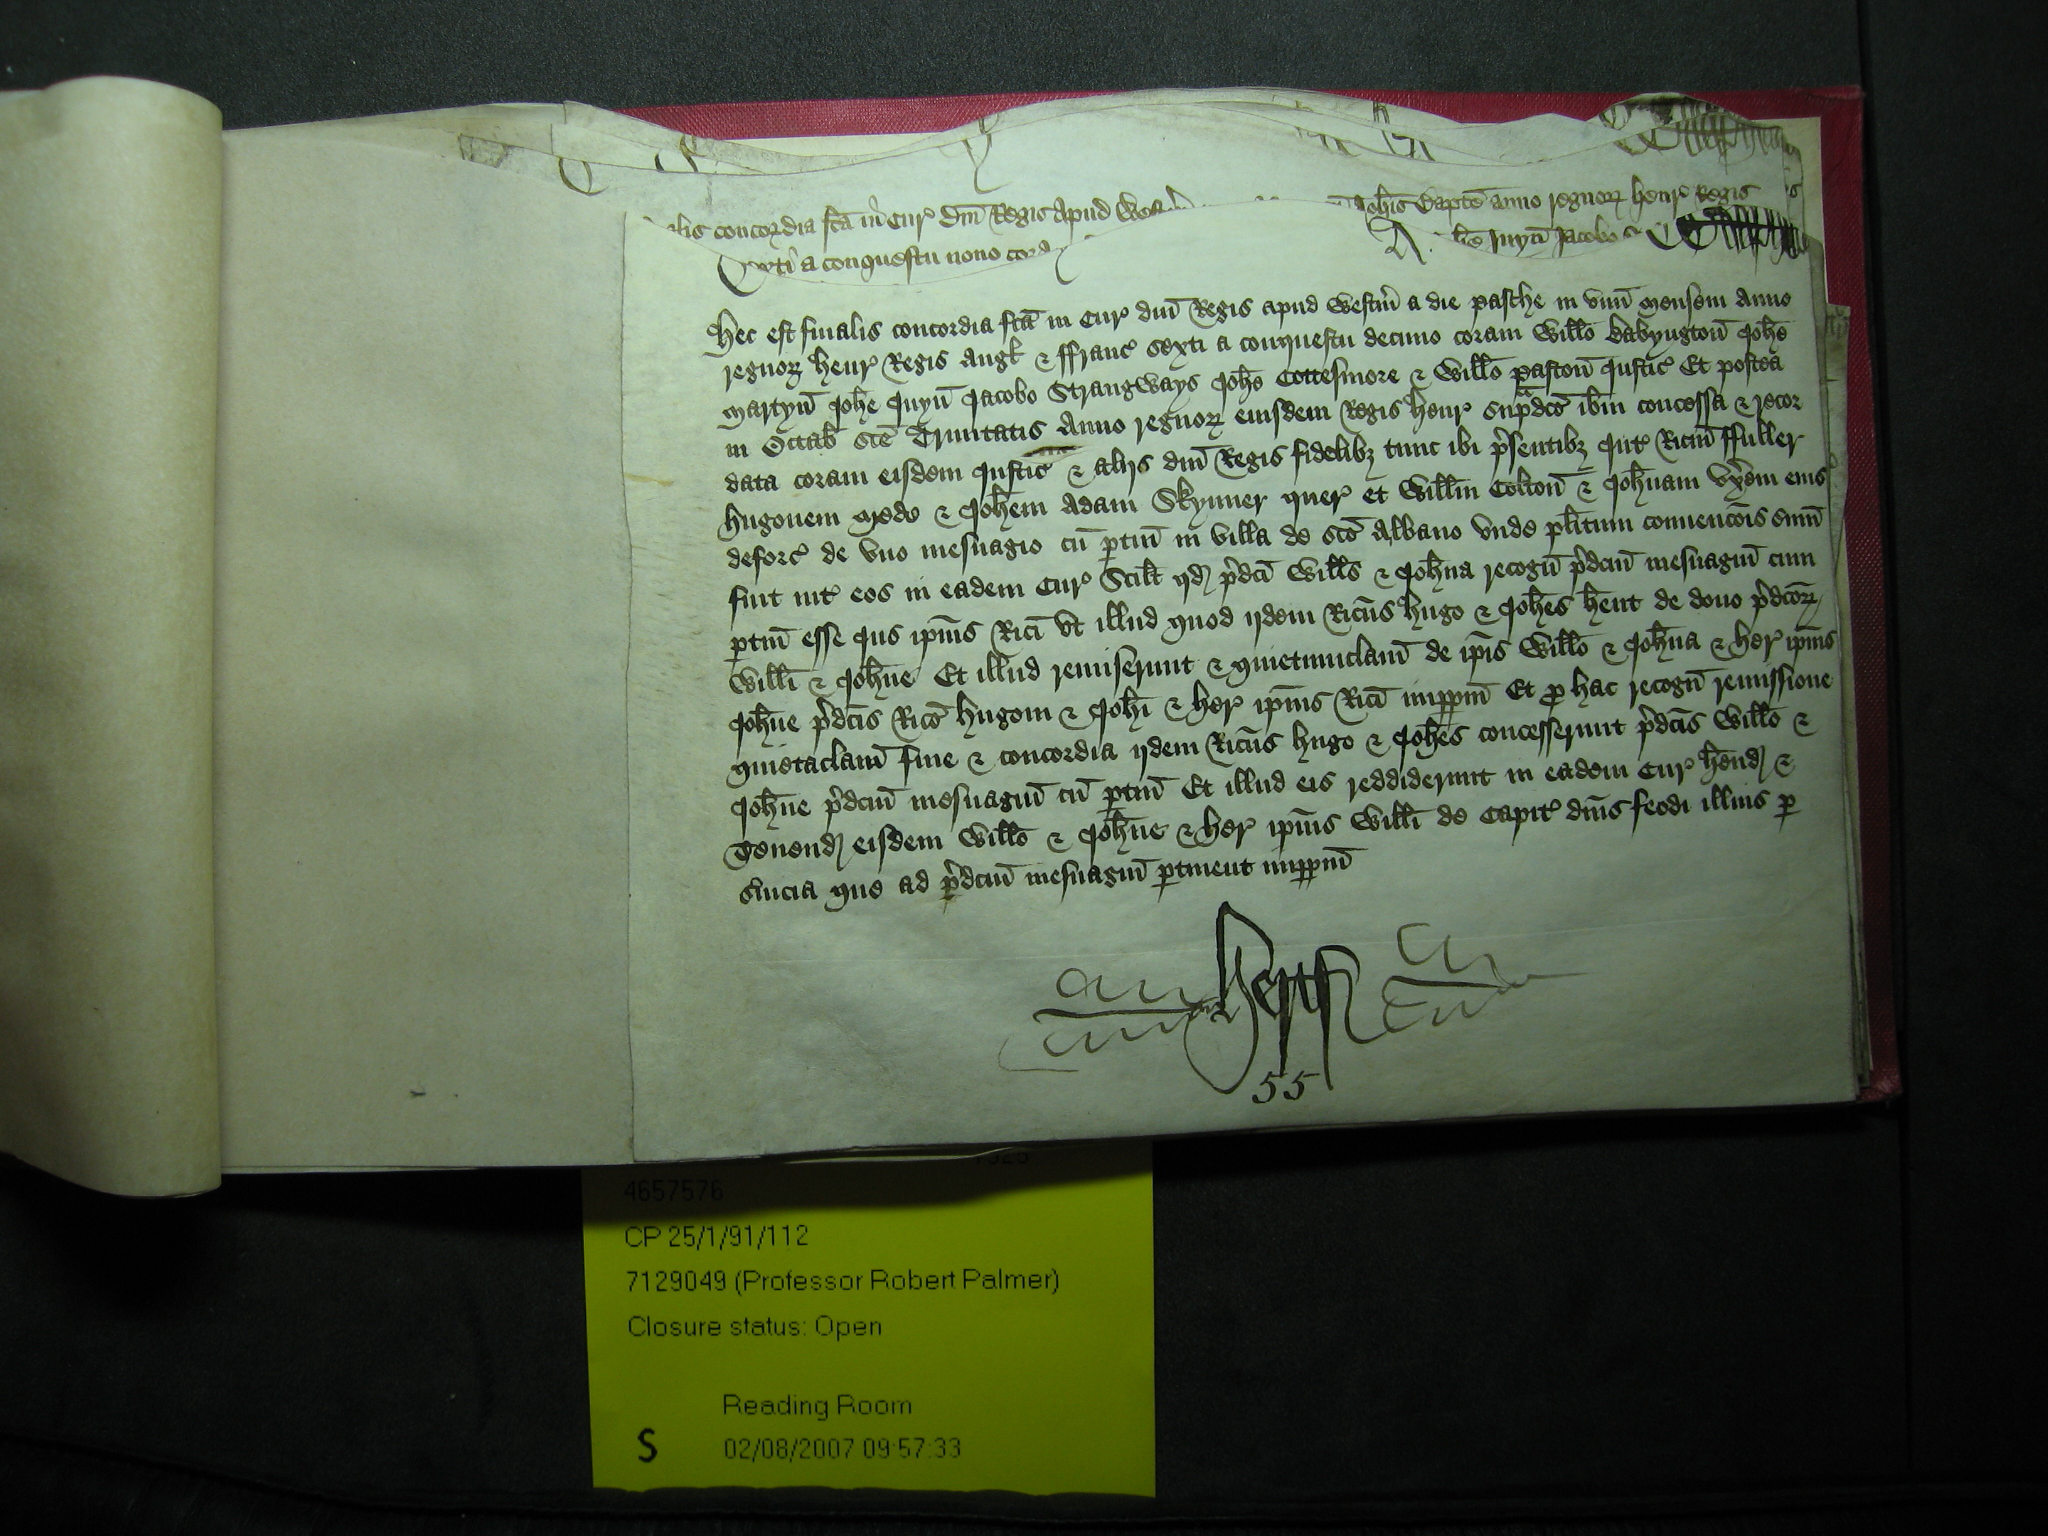 alis concordia fcā in Cur dn̄i Regis apud West Joh̄is Bapte anno regnoꝝ henr Regis
sexti a conquestu nono cora h̄e Juyn Jacobo
Hec est finalis concordia fcā in Cur dn̄i Regis apud Westm̄ a die pasche in vnū mensem Anno
regnoꝝ henr Regis Angł & ffranc sexti a conquestu decimo coram Willo Babyngton̄ Joh̄e
Martyn̄ Joh̄e Juyn̄ Jacobo Strangways Joh̄e Cottesmore & Willo paston̄ Justic Et postea
in Octab̄ sc̄e Trinitatis Anno regnoꝝ eiusdem Regis henr sup̄dc̄o ib̄m concessa & recor
data coram eisdem Justic & alijs dn̄i Regis fidelibꝫ tunc ibi p̄sentibꝫ Int Ric̄m ffuller
hugonem mede & Joh̄em Adam Skynner quer et Willm̄ Colton̄ & Joh̄nam vx̄em eius
deforc de vno mesuagio cū ptin̄ in villa de sc̄o Albano vnde pl̄itum convenc̄ois sum̄
fuit int eos in eadem Cur Scilt qd p̄dc̄i Wills & Joh̄na recogn̄ p̄dcm̄ mesuagiū cum
ptin̄ esse Jus ip̄ius Ric̄i vt illud quod ijdem Ric̄us hugo & Joh̄es h̄ent de dono p̄dcoꝝ
Willi & Joh̄ne Et illud remiserunt & quietumclam̄ de ip̄is Willo & Joh̄na & her ip̄ius
Joh̄ne p̄dc̄is Ric̄o hugoni & Joh̄i & her ip̄ius Ric̄i imppm̄ Et ꝓ hac recogn̄ remissione
quietaclam̄ fine & concordia ijdem Ric̄us hugo & Joh̄es concesserunt p̄dc̄is Willo &
Joh̄ne p̄dcm̄ mesuagiū cū ptin̄ Et illud eis reddiderunt in eadem Cur h̄end &
Tenend eisdem Willo & Joh̄ne & her ip̄ius Willi de Capit dn̄is feodi illius p
s̄uicia que ad p̄dcm̄ mesuagiū ptinent imppm̄
hertf
55
4657576
CP 25/1/91/112
7129049 (Professor Robert Palmer)
Closure status: Open
Reading Room
S 02/08/2007 09:57:33